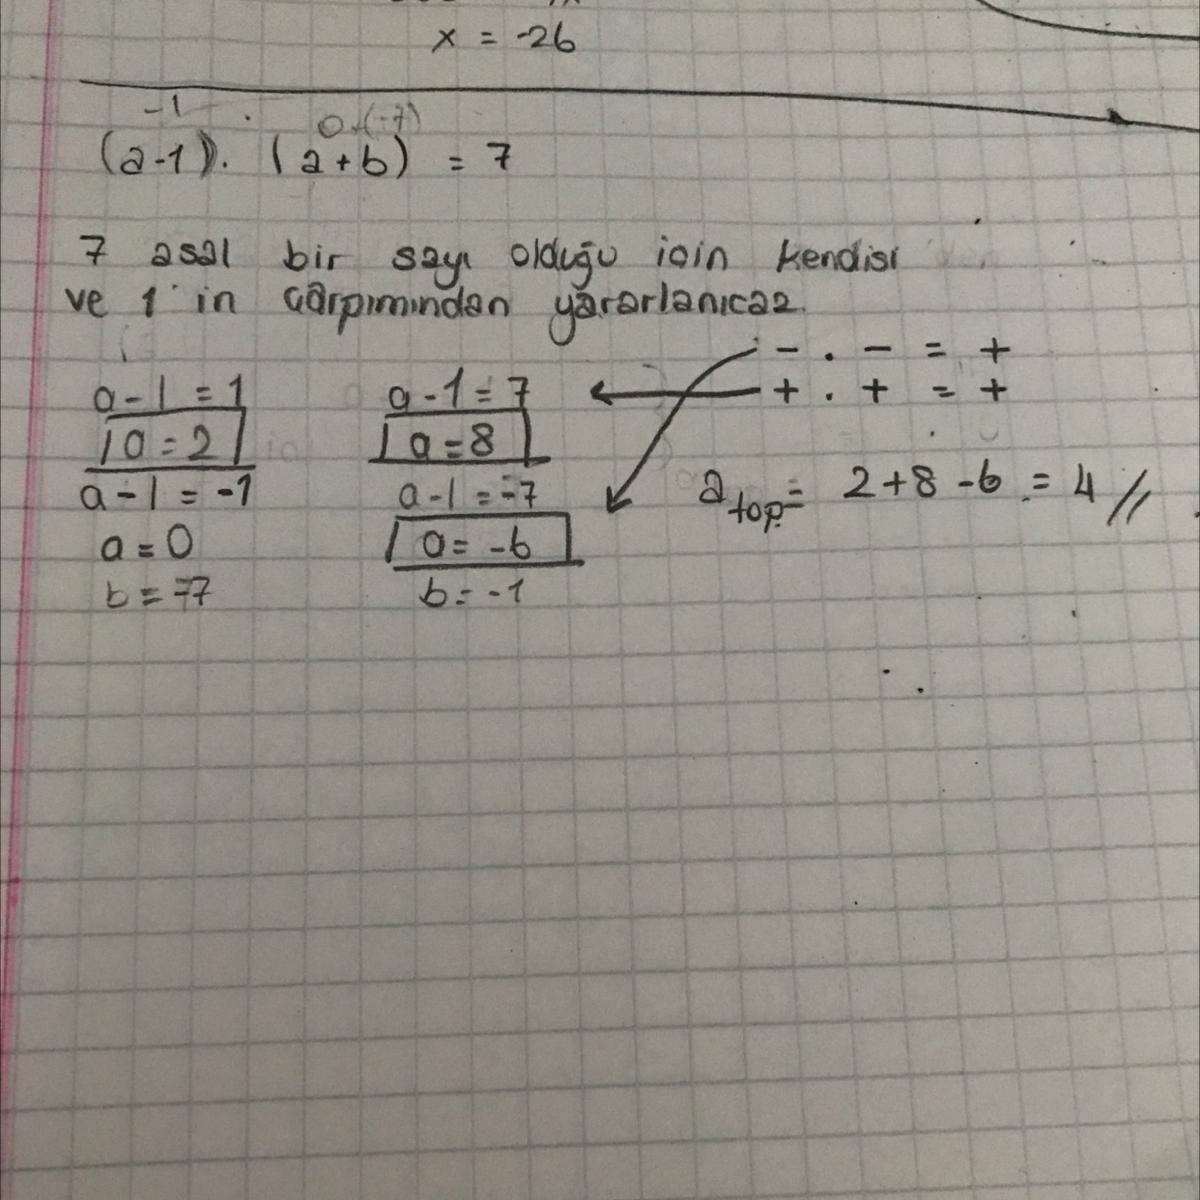 x = -26
-1
0.(-7)
(a-1). (a+b) = 7
7 asal bir sayı olduğu için kendisi
ve 1'in çarpımından yararlanıcaz.
- . - = +
a-1 = 1 a-1 = 7 + . + = +
a = 2 a = 8
a-1 = -1 a-1 = -7 a top = 2+8-6 = 4 //
a = 0 a = -6
b = -7 b = -1